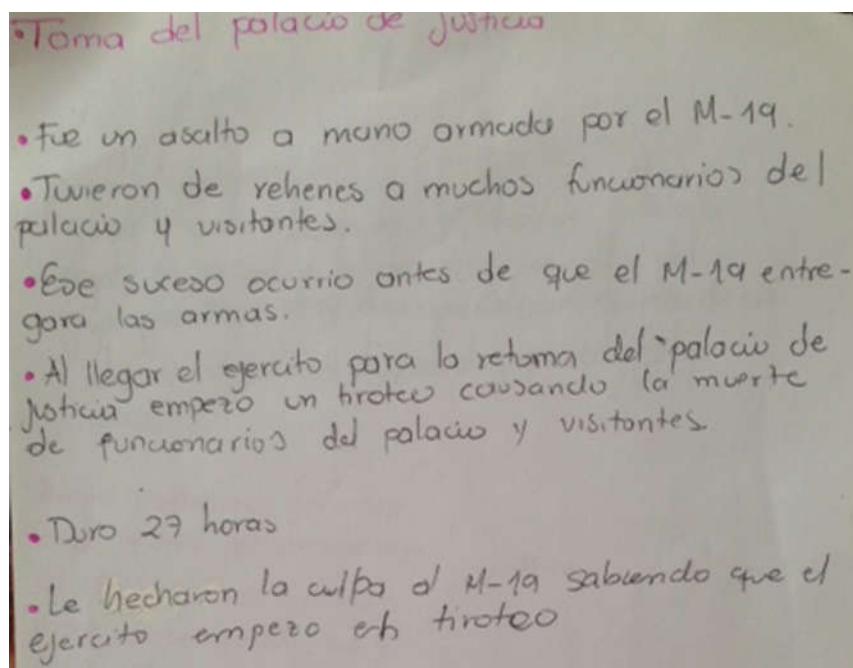 •Toma del palacio de Justicia
•Fue un asalto a mano armada por el M-19.
•Tuvieron de rehenes a muchos funcionarios del
palacio y visitantes.
•Ese suceso ocurrio antes de que el M-19 entre-
gara las armas.
•Al llegar el ejercito para la retoma del palacio de
justicia empezo un tiroteo causando la muerte
de funcionarios del palacio y visitantes
•Duro 27 horas
•Le hecharon la culpa al M-19 sabiendo que el
ejercito empezo el tiroteo